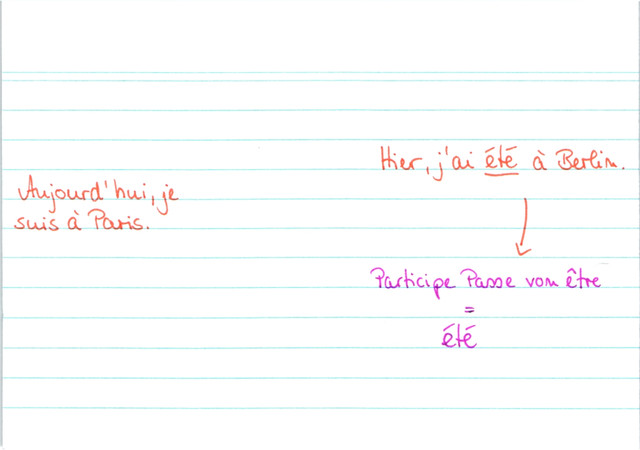 Aujourd'hui, je
suis à Paris.
Hier, j'ai été à Berlin.
Participe Passe vom être
=
été